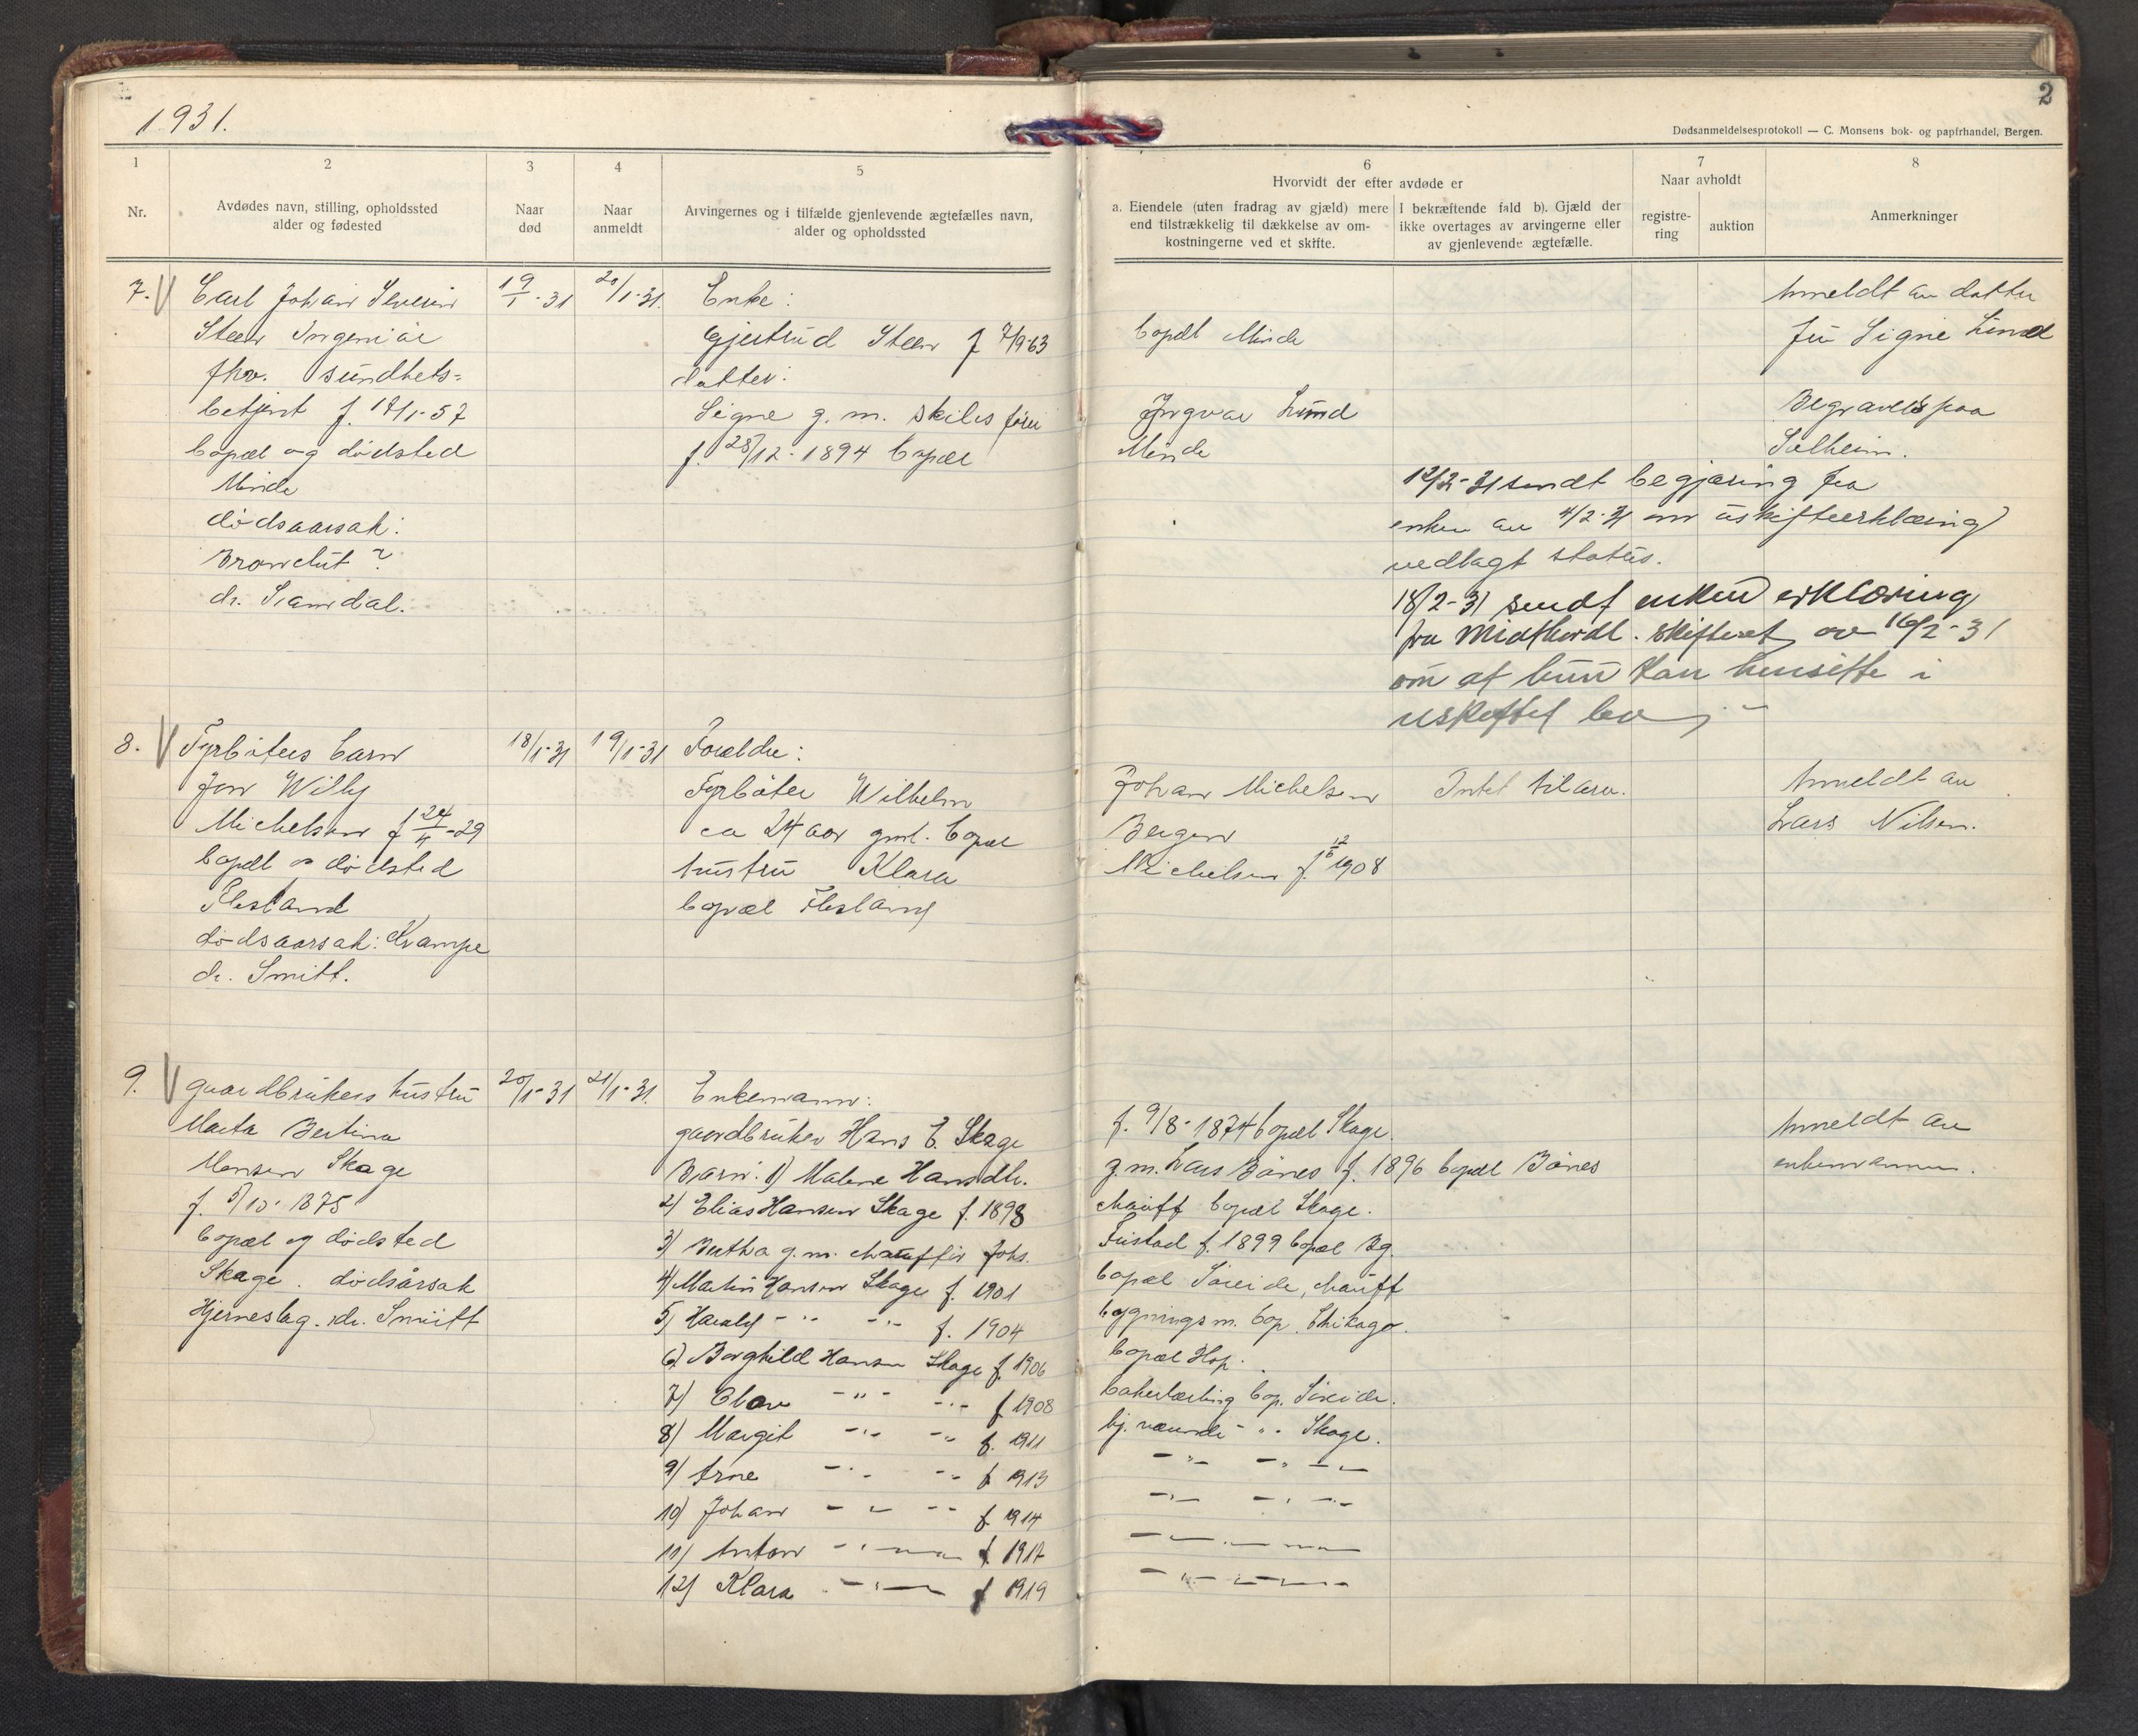 2
1931.
Dødsanmeldelsesprotokoll — C. Monsens bok- og papirhandel, Bergen.
1
Nr.
2
Avdødes navn, stilling, opholdssted
alder og fødested
3
Naar
død
4
Naar
anmeldt
5
Arvingernes og i tilfælde gjenlevende ægtefælles navn,
alder og opholdssted
6
Hvorvidt der efter avdøde er
a. Eiendele (uten fradrag av gjæld) mere
end tilstrækkelig til dækkelse av om-
kostningerne ved et skifte.
I bekræftende fald b). Gjæld der
ikke overtages av arvingerne eller
av gjenlevende ægtefælle.
7
Naar avholdt
registre-
ring
auktion
8
Anmerkninger
7. Carl Johan Severin 19/1-31 20/1-31. Enke: Anmeldt av datter
Steen Ingeniør Gjertrud Steen f 7/9-63 bopæl Minde fru Signe Lund
fhv. sundhets- datter:
betjent f. 17/1-57 Signe g. m. skibsfører Ingvar Lund Begravels paa
bopæl og dødsted f. 28/12-1894 bopæl Minde Solheim.
Minde 12/2-31 sendt begjæring fra
dødsaarsak: enken av 4/2-31 om uskifteerklæring
Bronchit? vedlagt status.
dr. 18/2-31 sendt enken erklæring
fra Midthordl. skifteret av 16/2-31
om at hun kan hensitte i
uskiftet bo
8. Fyrbøters barn 18/1-31 19/1-31 Forældre:
Jon Willy Fyrbøter Wilhelm Johan Michelsen Intet tilarv. Anmeldt av
Michelsen f 24/4-29 ca 24 aar gml. bopæl Bergen Lars Nilsen.
bopæl og dødsted hustru Klara Michelsen f. 12/6 1908
Flesland bopæl Flesland
dødsaarsak: Krampe
dr. Smitt.
9. gaardbrukers hustru 20/1-31 21/1-31. Enkemann:
Marta Bertina gaardbruker Hans E. Skage f. 9/8-1874 bopæl Skage. Anmeldt av
Monsen Skage Barn: 1) Malene Hansdtr. g. m. Lars Bønes f. 1896 bopæl Bønes enkemannen.
f. 5/10-1875 2) Elias Hansen Skage f. 1898 chauff bopæl Skage.
bopæl og dødsted 3) Bertha g. m. chauffør Johs. Fristad f. 1899 bopæl Bg.
Skage. dødsårsak 4) Martin Hansen Skage f. 1901 bopæl Søreide, chauff
Hjerneslag. dr. Smitt 5) Harald -"- -"- f. 1904 bygningsm. bop. Chikago.
6) Borghild Hansen Skage f. 1906 bopæl Hop.
7) Olav -"- -"- f 1908 bakerlærling bop. Søreide.
8) Margit -"- -"- f. 1911 hj. værende -"- Skage.
9) Arne -"- -"- f 1913 -"- -"- -"-
10) Johan -"- -"- f 1914 -"- -"- -"-
11) Anton -"- -"- f 1917 -"- -"- -"-
12) Klara -"- -"- f 1919 -"- -"- -"-